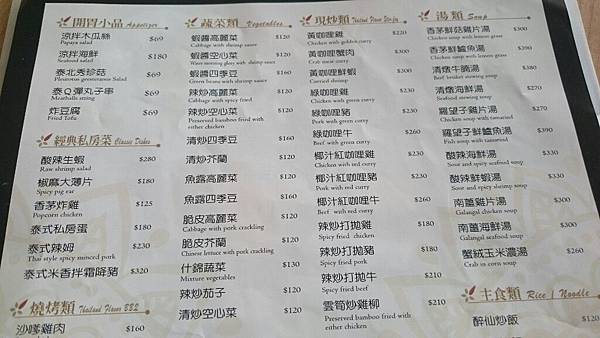 開胃小品 Appetizer
涼拌木瓜絲 $69
Papaya salad
涼拌海鮮 $180
Seafood salad
泰北秀珍菇 $69
Pleurotus geesteranus Salad
泰Q彈丸子串 $69
Meatballs string
炸豆腐 $69
Fried Tofu
經典私房菜 Classic Dishes
酸辣生蝦 $280
Raw shrimp salad
椒麻大薄片 $180
Spicy pig ear
香茅炸雞 $125
Popcorn chicken
泰式私房蛋 $180
泰式辣姆 $230
Thai style spicy minced pork
泰式米香拌霜降豬 $320
燒烤類 Thailand Flavor BB2
沙嗲雞肉 $160
蔬菜類 Vegetables
蝦醬高麗菜 $120
Cabbage with shrimp sauce
蝦醬空心菜 $120
Water morning glory with shrimp sauce
蝦醬四季豆 $160
Green beans with shrimp sauce
辣炒高麗菜 $120
Cabbage with spicy fried
辣炒空心菜 $120
Preserved bamboo fried with
either chicken
清炒四季豆 $160
清炒芥蘭 $120
魚露高麗菜 $120
魚露四季豆 $160
脆皮高麗菜 $120
Cabbage with pork crackling
脆皮芥蘭 $120
Chinese lettuce with pork crackling
什錦蔬菜 $130
Mixture vegetables
辣炒茄子 $120
清炒空心菜 $120
現炒類
黃咖哩雞 $200
Chicken with golden curry
黃咖哩蟹肉 $390
Crab meat curry
黃咖哩鮮蝦 $310
Curried shrimp
綠咖哩雞 $200
Chicken with green curry
綠咖哩豬 $200
Pork with green curry
綠咖哩牛 $210
Beef with green curry
椰汁紅咖哩雞 $200
Chicken with red curry
椰汁紅咖哩豬 $200
Pork with red curry
椰汁紅咖哩牛 $210
Beef with red curry
辣炒打拋雞 $200
Spicy fried chicken
辣炒打拋豬 $200
Spicy fried pork
辣炒打拋牛 $210
Spicy fried beef
雲筍炒雞柳 $210
Preserved bamboo fried with
either chicken
湯類 Soup
香茅鮮菇雞片湯 $300
Chicken soup with lemon grass
香茅鮮鱸魚湯 $390
Chicken soup with lemon grass
清燉牛腩湯 $230
Beef brisket stewing soup
清燉海鮮湯 $270
Seafood stewing soup
羅望子雞片湯 $270
Chicken soup with tamarind
羅望子鮮鱸魚湯 $390
Fish soup with tamarind
酸辣海鮮湯 $330
Sour and spicy seafood soup
酸辣鮮蝦湯 $350
Sour and spicy shrimp soup
南薑雞片湯 $300
Galangal chicken soup
南薑海鮮湯 $330
Galangal seafood soup
蟹絨玉米濃湯 $260
Crab in corn soup
主食類 Rice / Noodle
醉仙炒飯 $120